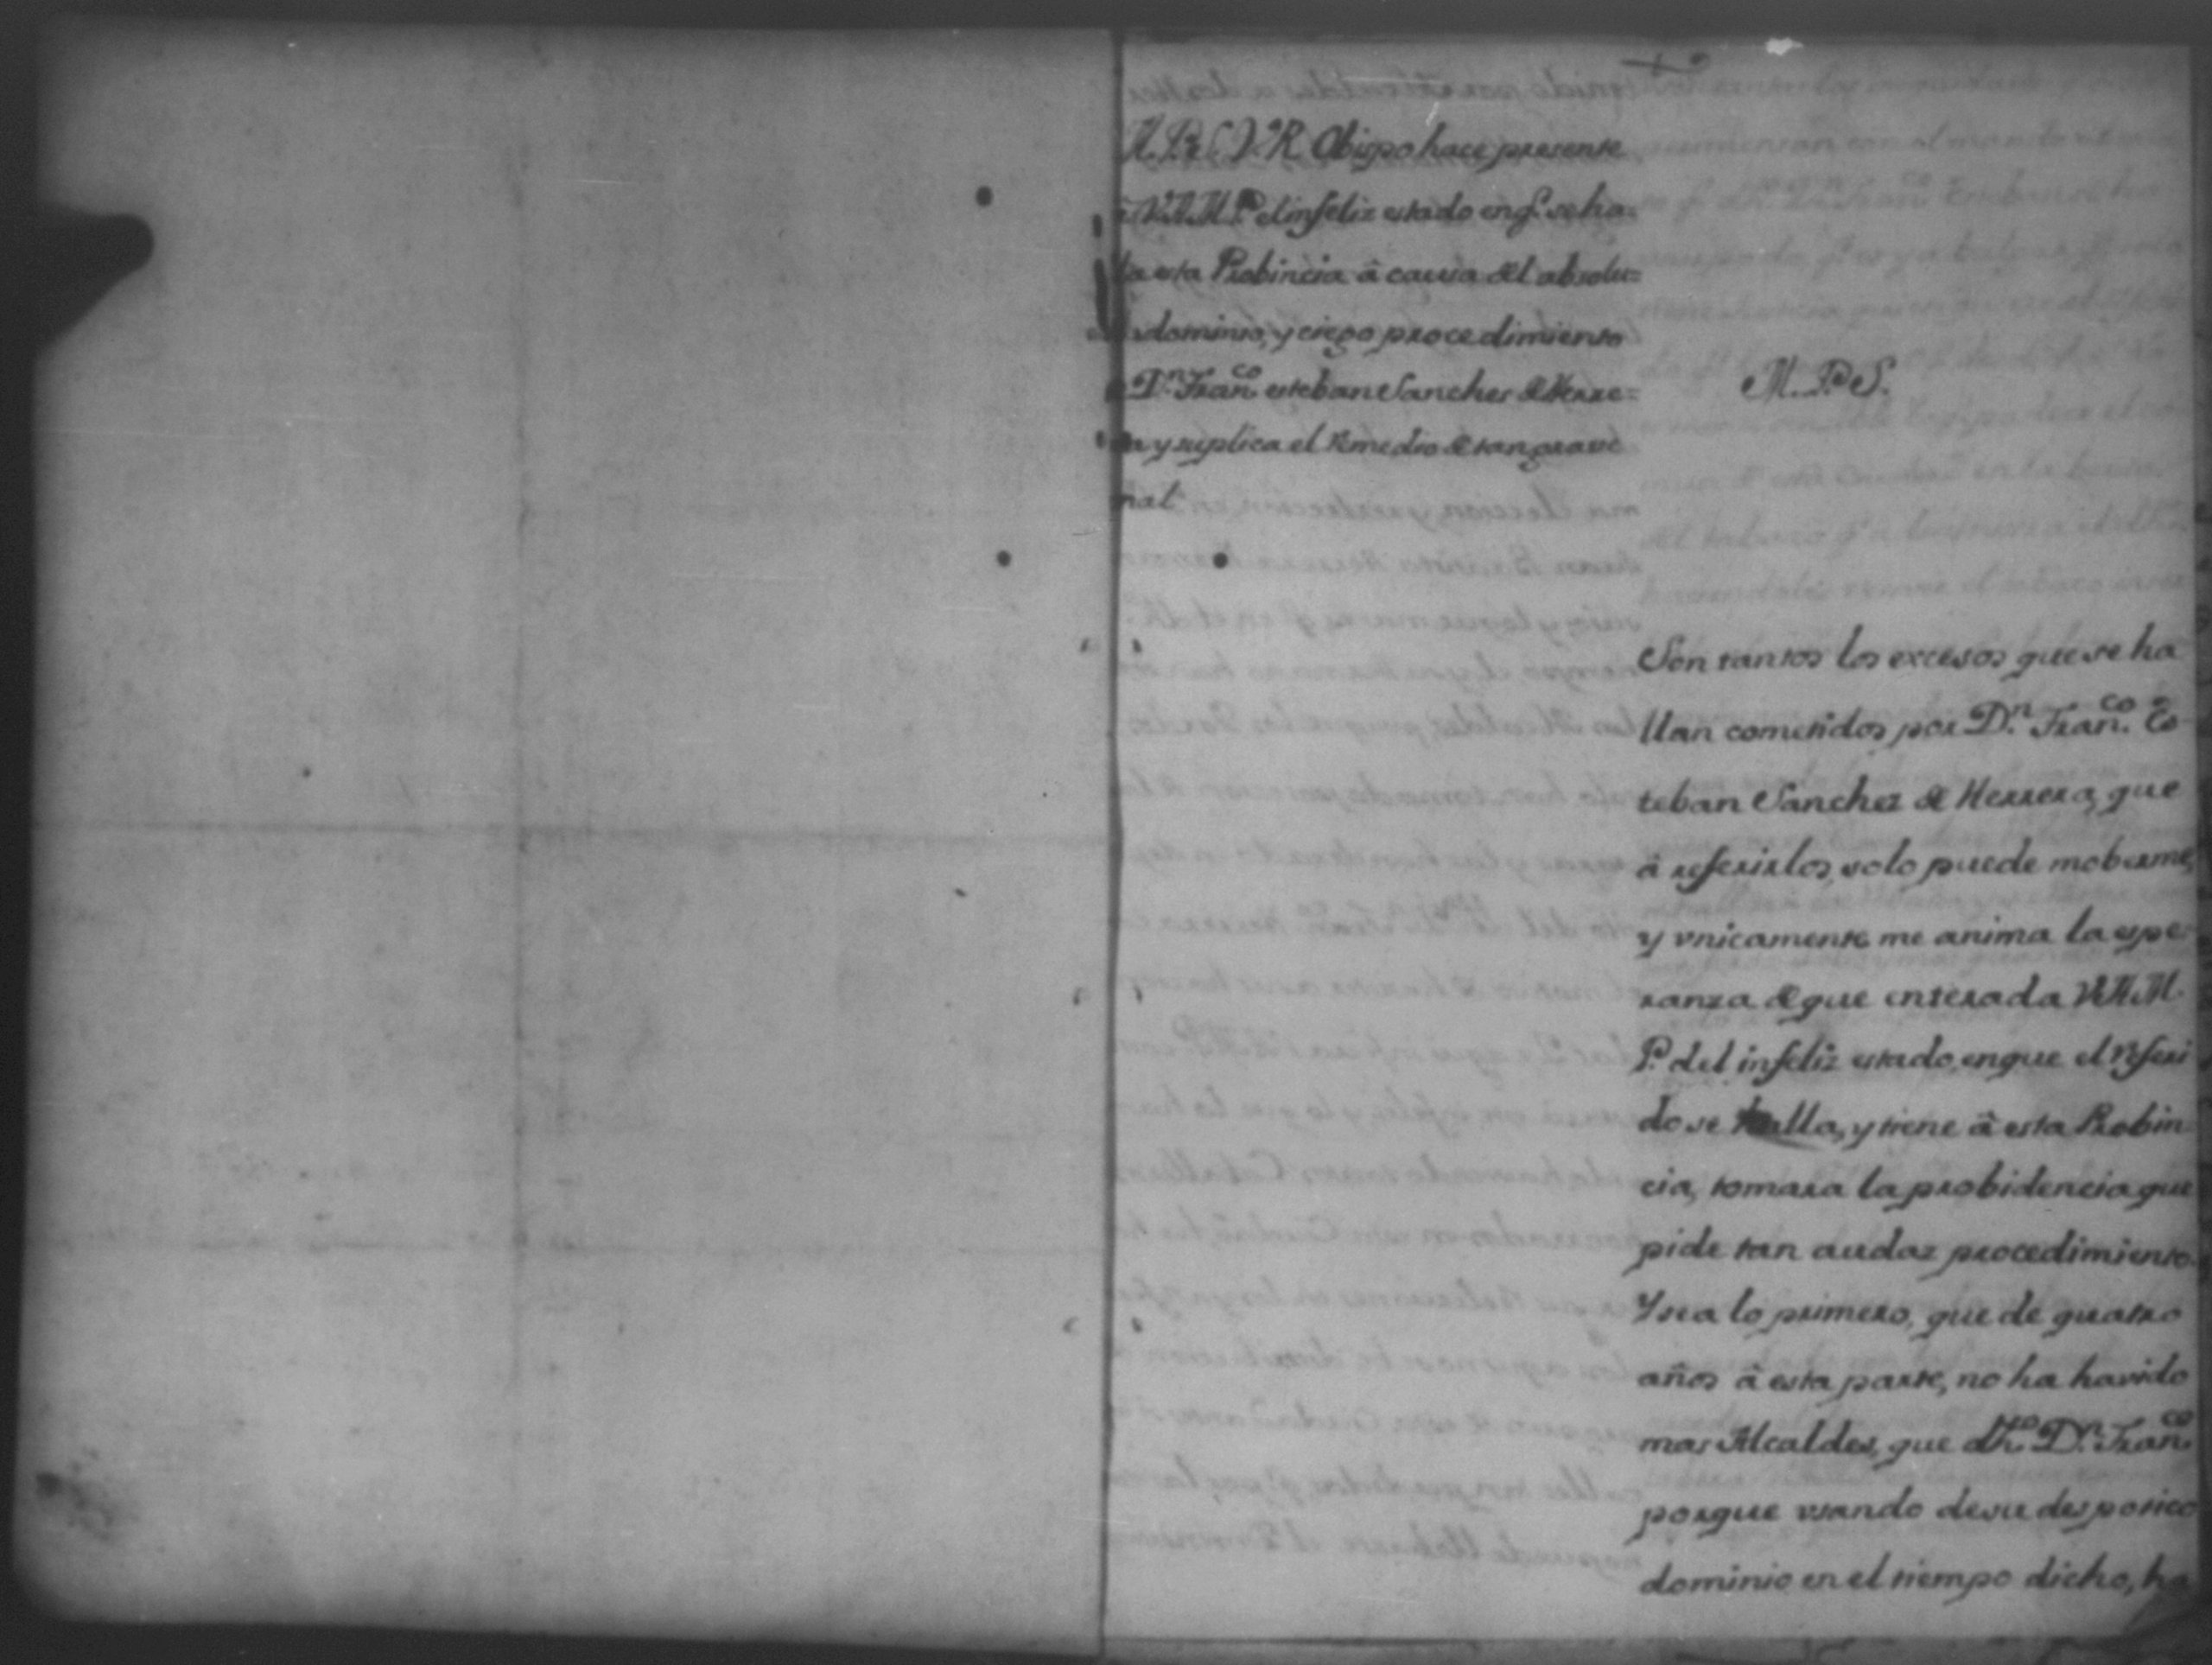 Obispo hace presente
el infeliz estado en q.e se ha=
esta Probincia â causa del absolu=
dominio, y ciego procedimiento
D.n Fran.co esteban Sanches de Herre=
y suplica el remedio de tan grave
mal
M. P. S.
Son tantos los excesos que se ha
llan cometidos por D.n Fran.co Es
teban Sanchez de Herrera, que
â referirlos, solo puede moberme,
y vnicamente me anima la espe
ranza de que enterada V.A.M.
P. del infeliz estado, en que el referi
do se halla, y tiene â esta Probin
cia, tomara la probidencia que
pide tan audaz procedimiento.
Y sea lo primero, que de quatro
años â esta parte, no ha havido
mas Alcaldes, que dho D.n Fran.co
porque vsando de su despotico
dominio en el tiempo dicho, ha